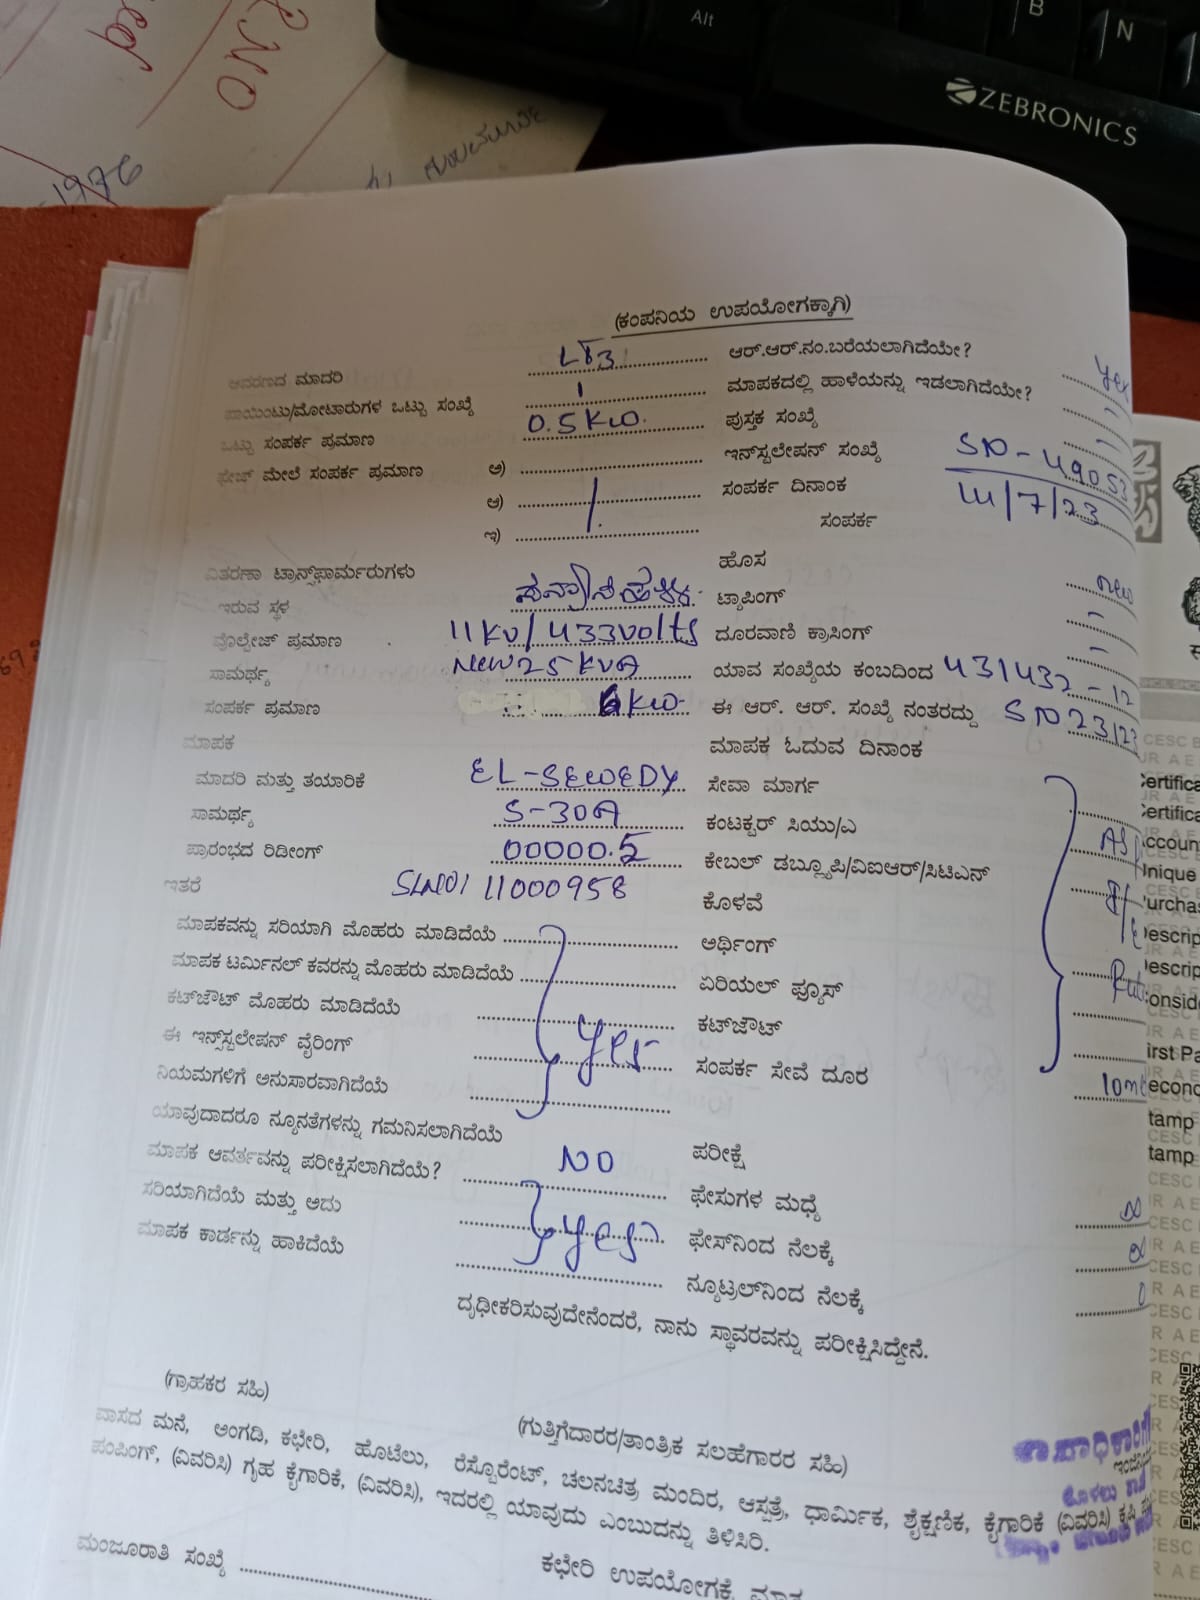 Alt
B
N
ZEBRONICS
RNO
ed
-1976
(ಕಂಪನಿಯ ಉಪಯೋಗಕ್ಕಾಗಿ)
ಆವರಣದ ಮಾದರಿ LT3 ಆರ್.ಆರ್.ನಂ.ಬರೆಯಲಾಗಿದೆಯೇ? yes
ಪಾಯಿಂಟು/ಮೋಟಾರುಗಳ ಒಟ್ಟು ಸಂಖ್ಯೆ 1 ಮಾಪಕದಲ್ಲಿ ಹಾಳೆಯನ್ನು ಇಡಲಾಗಿದೆಯೇ? -
ಒಟ್ಟು ಸಂಪರ್ಕ ಪ್ರಮಾಣ 0.5 KW. ಪುಸ್ತಕ ಸಂಖ್ಯೆ -
ಫೇಜ್ ಮೇಲೆ ಸಂಪರ್ಕ ಪ್ರಮಾಣ ಅ) ಇನ್‌ಸ್ಟಲೇಷನ್ ಸಂಖ್ಯೆ SN-49053
ಆ) ಸಂಪರ್ಕ ದಿನಾಂಕ 14/7/23
ಇ) ಸಂಪರ್ಕ
ವಿತರಣಾ ಟ್ರಾನ್ಸ್‌ಫಾರ್ಮರುಗಳು ಹೊಸ new
ಇರುವ ಸ್ಥಳ ಟ್ಯಾಪಿಂಗ್ -
ವೋಲ್ಟೇಜ್ ಪ್ರಮಾಣ 11KV/433volts ದೂರವಾಣಿ ಕ್ರಾಸಿಂಗ್ -
ಸಾಮರ್ಥ್ಯ New 25 KVA ಯಾವ ಸಂಖ್ಯೆಯ ಕಂಬದಿಂದ 431432-12
ಸಂಪರ್ಕ ಪ್ರಮಾಣ KW. ಈ ಆರ್. ಆರ್. ಸಂಖ್ಯೆ ನಂತರದ್ದು
ಮಾಪಕ ಮಾಪಕ ಓದುವ ದಿನಾಂಕ
ಮಾದರಿ ಮತ್ತು ತಯಾರಿಕೆ EL-SEWEDY ಸೇವಾ ಮಾರ್ಗ
ಸಾಮರ್ಥ್ಯ 5-30A ಕಂಟಕ್ಟರ್ ಸಿಯು/ಎ
ಪ್ರಾರಂಭದ ರಿಡೀಂಗ್ 00000.5 ಕೇಬಲ್ ಡಬ್ಲ್ಯೂಪಿ/ವಿಐಆರ್/ಸಿಟಿಎನ್
ಇತರೆ SLNO: 11000958 ಕೊಳವೆ
ಮಾಪಕವನ್ನು ಸರಿಯಾಗಿ ಮೊಹರು ಮಾಡಿದೆಯೆ ಅರ್ಥಿಂಗ್
ಮಾಪಕ ಟರ್ಮಿನಲ್ ಕವರನ್ನು ಮೊಹರು ಮಾಡಿದೆಯೆ ಏರಿಯಲ್ ಫ್ಯೂಸ್
ಕಟ್‌ಔಟ್ ಮೊಹರು ಮಾಡಿದೆಯೆ yes ಕಟ್‌ಔಟ್
ಈ ಇನ್ಸ್‌ಸ್ಟಲೇಷನ್ ವೈರಿಂಗ್ ಸಂಪರ್ಕ ಸೇವೆ ದೂರ
ನಿಯಮಗಳಿಗೆ ಅನುಸಾರವಾಗಿದೆಯೆ
ಯಾವುದಾದರೂ ನ್ಯೂನತೆಗಳನ್ನು ಗಮನಿಸಲಾಗಿದೆಯೆ NO ಪರೀಕ್ಷೆ
ಮಾಪಕ ಆವರ್ತವನ್ನು ಪರೀಕ್ಷಿಸಲಾಗಿದೆಯೆ? ಫೇಸುಗಳ ಮಧ್ಯೆ
ಸರಿಯಾಗಿದೆಯೆ ಮತ್ತು ಅದು yes ಫೇಸ್‌ನಿಂದ ನೆಲಕ್ಕೆ
ಮಾಪಕ ಕಾರ್ಡನ್ನು ಹಾಕಿದೆಯೆ ನ್ಯೂಟ್ರಲ್‌ನಿಂದ ನೆಲಕ್ಕೆ
ದೃಢೀಕರಿಸುವುದೇನೆಂದರೆ, ನಾನು ಸ್ಥಾವರವನ್ನು ಪರೀಕ್ಷಿಸಿದ್ದೇನೆ.
(ಗ್ರಾಹಕರ ಸಹಿ) (ಗುತ್ತಿಗೆದಾರರ/ತಾಂತ್ರಿಕ ಸಲಹೆಗಾರರ ಸಹಿ)
ವಾಸದ ಮನೆ, ಅಂಗಡಿ, ಕಛೇರಿ, ಹೊಟೆಲು, ರೆಸ್ಟೊರೆಂಟ್, ಚಲನಚಿತ್ರ ಮಂದಿರ, ಆಸ್ಪತ್ರೆ, ಧಾರ್ಮಿಕ, ಶೈಕ್ಷಣಿಕ, ಕೈಗಾರಿಕೆ (ವಿವರಿಸಿ) ಕೃಷಿ
ಪಂಪಿಂಗ್, (ವಿವರಿಸಿ) ಗೃಹ ಕೈಗಾರಿಕೆ, (ವಿವರಿಸಿ), ಇದರಲ್ಲಿ ಯಾವುದು ಎಂಬುದನ್ನು ತಿಳಿಸಿರಿ.
ಮಂಜೂರಾತಿ ಸಂಖ್ಯೆ ಕಛೇರಿ ಉಪಯೋಗಕ್ಕೆ ಮಾತ್ರ